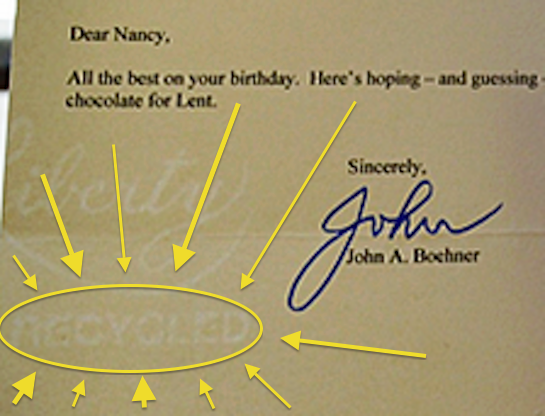 Dear Nancy,
All the best on your birthday. Here's hoping – and guessing -
chocolate for Lent.
Liberty
Sincerely,
John
John A. Boehner
RECYCLED